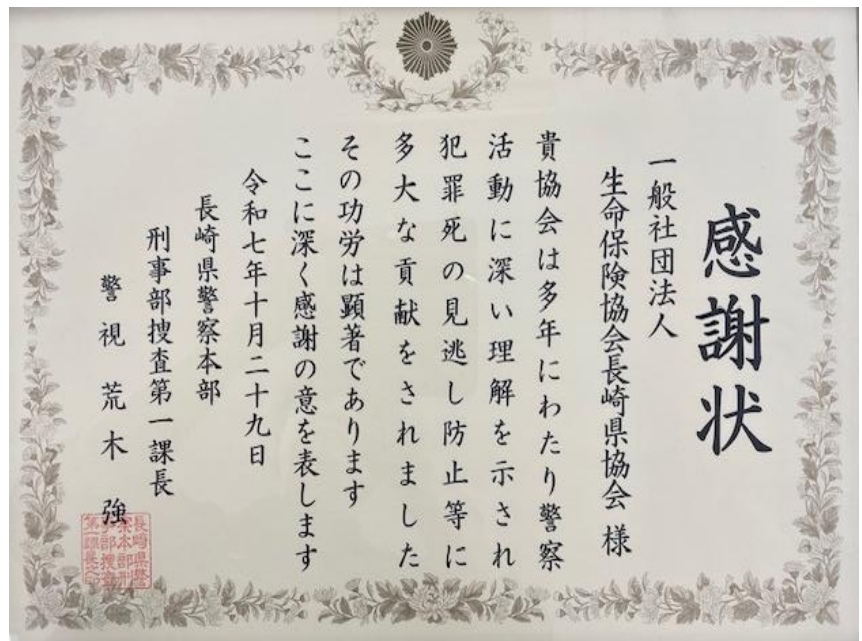 感謝状
一般社団法人
生命保険協会長崎県協会 様
貴協会は多年にわたり警察
活動に深い理解を示され
犯罪死の見逃し防止等に
多大な貢献をされました
その功労は顕著であります
ここに深く感謝の意を表します
令和七年十月二十九日
長崎県警察本部
刑事部捜査第一課長
警視 荒木 強
長崎県警
察本部刑
事部捜査
第一課長之印